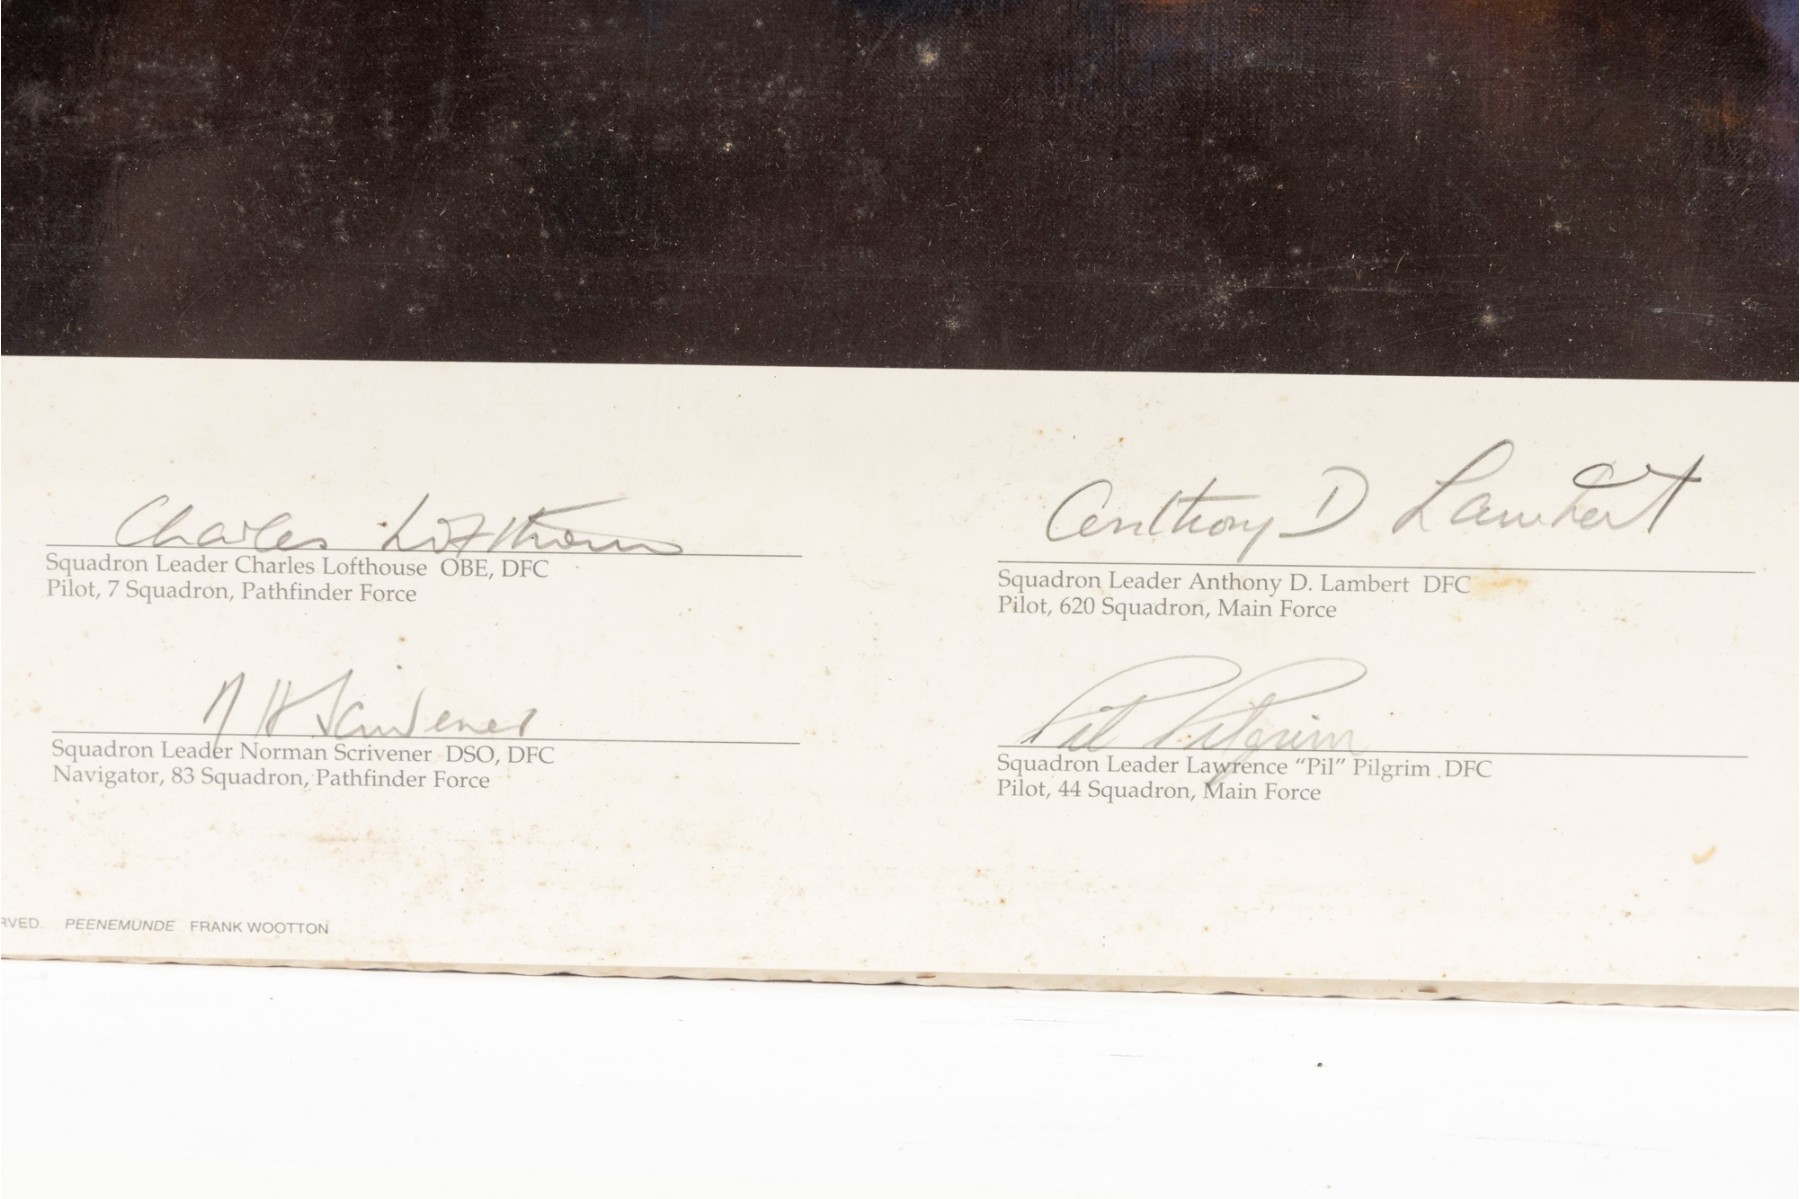 Charles Lofthouse
Squadron Leader Charles Lofthouse OBE, DFC
Pilot, 7 Squadron, Pathfinder Force
N H Scrivener
Squadron Leader Norman Scrivener DSO, DFC
Navigator, 83 Squadron, Pathfinder Force
Anthony D Lambert
Squadron Leader Anthony D. Lambert DFC
Pilot, 620 Squadron, Main Force
Pil Pilgrim
Squadron Leader Lawrence “Pil” Pilgrim DFC
Pilot, 44 Squadron, Main Force
RVED. PEENEMUNDE FRANK WOOTTON